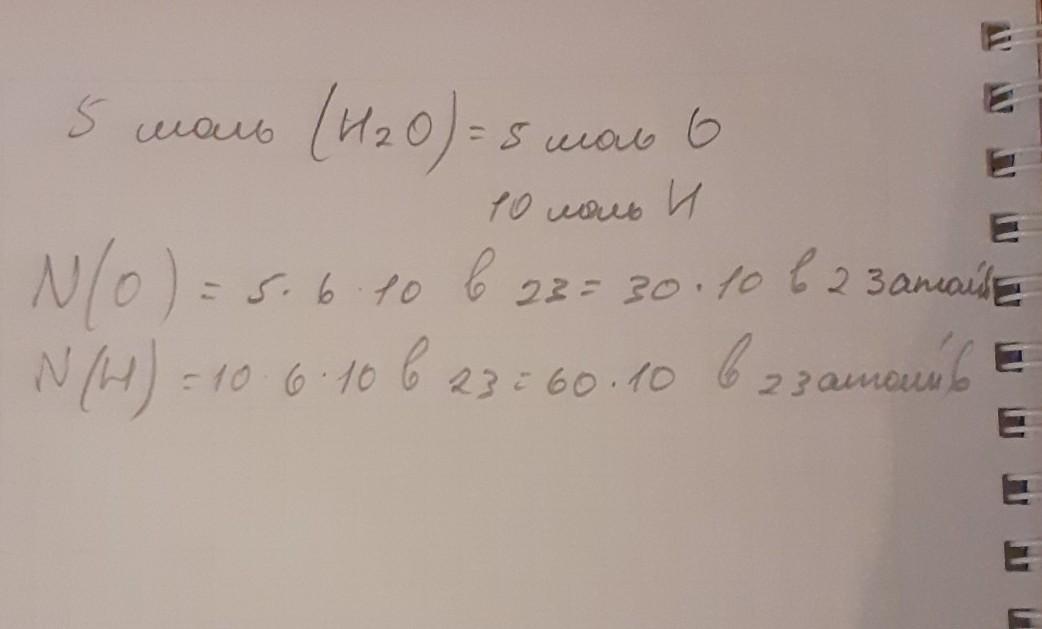 5 моль (H₂O) = 5 моль O
10 моль H
N(O) = 5 · 6 · 10 в 23 = 30 · 10 в 23 атомів
N(H) = 10 · 6 · 10 в 23 = 60 · 10 в 23 атомів